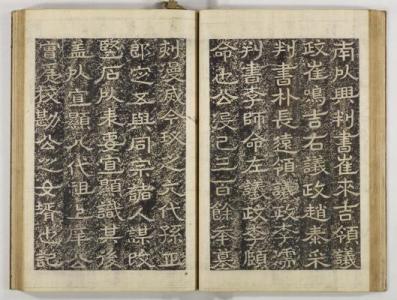 南以興判書崔來吉領議
政崔鳴吉右議政趙泰采
判書朴長遠領議政李濡
判書李師命左議政李頤
命也公沒已三百餘年墓
刻漫滅今公之六代孫正
郎與同宗諸人謀改
竪石以來要宣顯識其後
盖以宣顯八代祖上公
實校勘公之女壻也記